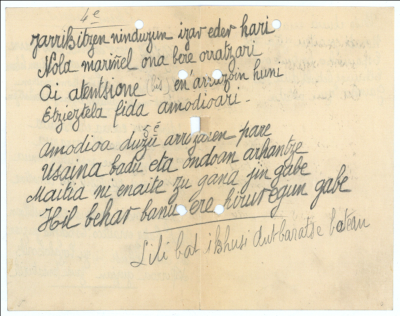 4e
Jarrikitzen ninduzun izar eder hari
Nola mariñel ona bere orratzari
Oi atentsione (bis) en' arrazoin huni
Etzieztela fida amodioari.
Amodioa duzu arrosaren pare
Usaina badu eta ondoan arhantze
Maitia ni enaite zu gana jin gabe
Hil behar banu ere hirur egun gabe
Lili bat ikhusi dut baratze batean